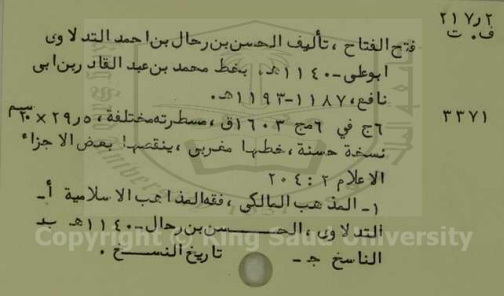 ٢١٧ر٢
ف. ت
فتح الفتاح ، تأليف الحسن بن رحال بن احمد التدلاوى
ابوعلى -١١٤٠هـ. بخط محمد بن عبد القادر بن ابى
نافع، ١١٨٧-١١٩٣هـ.
٣٣٧١
٦ج في ٦مج ١٦٠٣ق، مسطرته مختلفة، ٢٩ر٥ × ٢٠سم
نسخة حسنة، خطها مغربى، ينقصها بعض الاجزاء
الاعلام ٢ : ٢٠٤
١- المذهب المالكى ، فقه المذاهب الاسلامية أ-
التدلاوى، الحسن بن رحال -١١٤٠هـ ب-
الناسخ ج- تاريخ النسخ .
Copyright © King Saud University